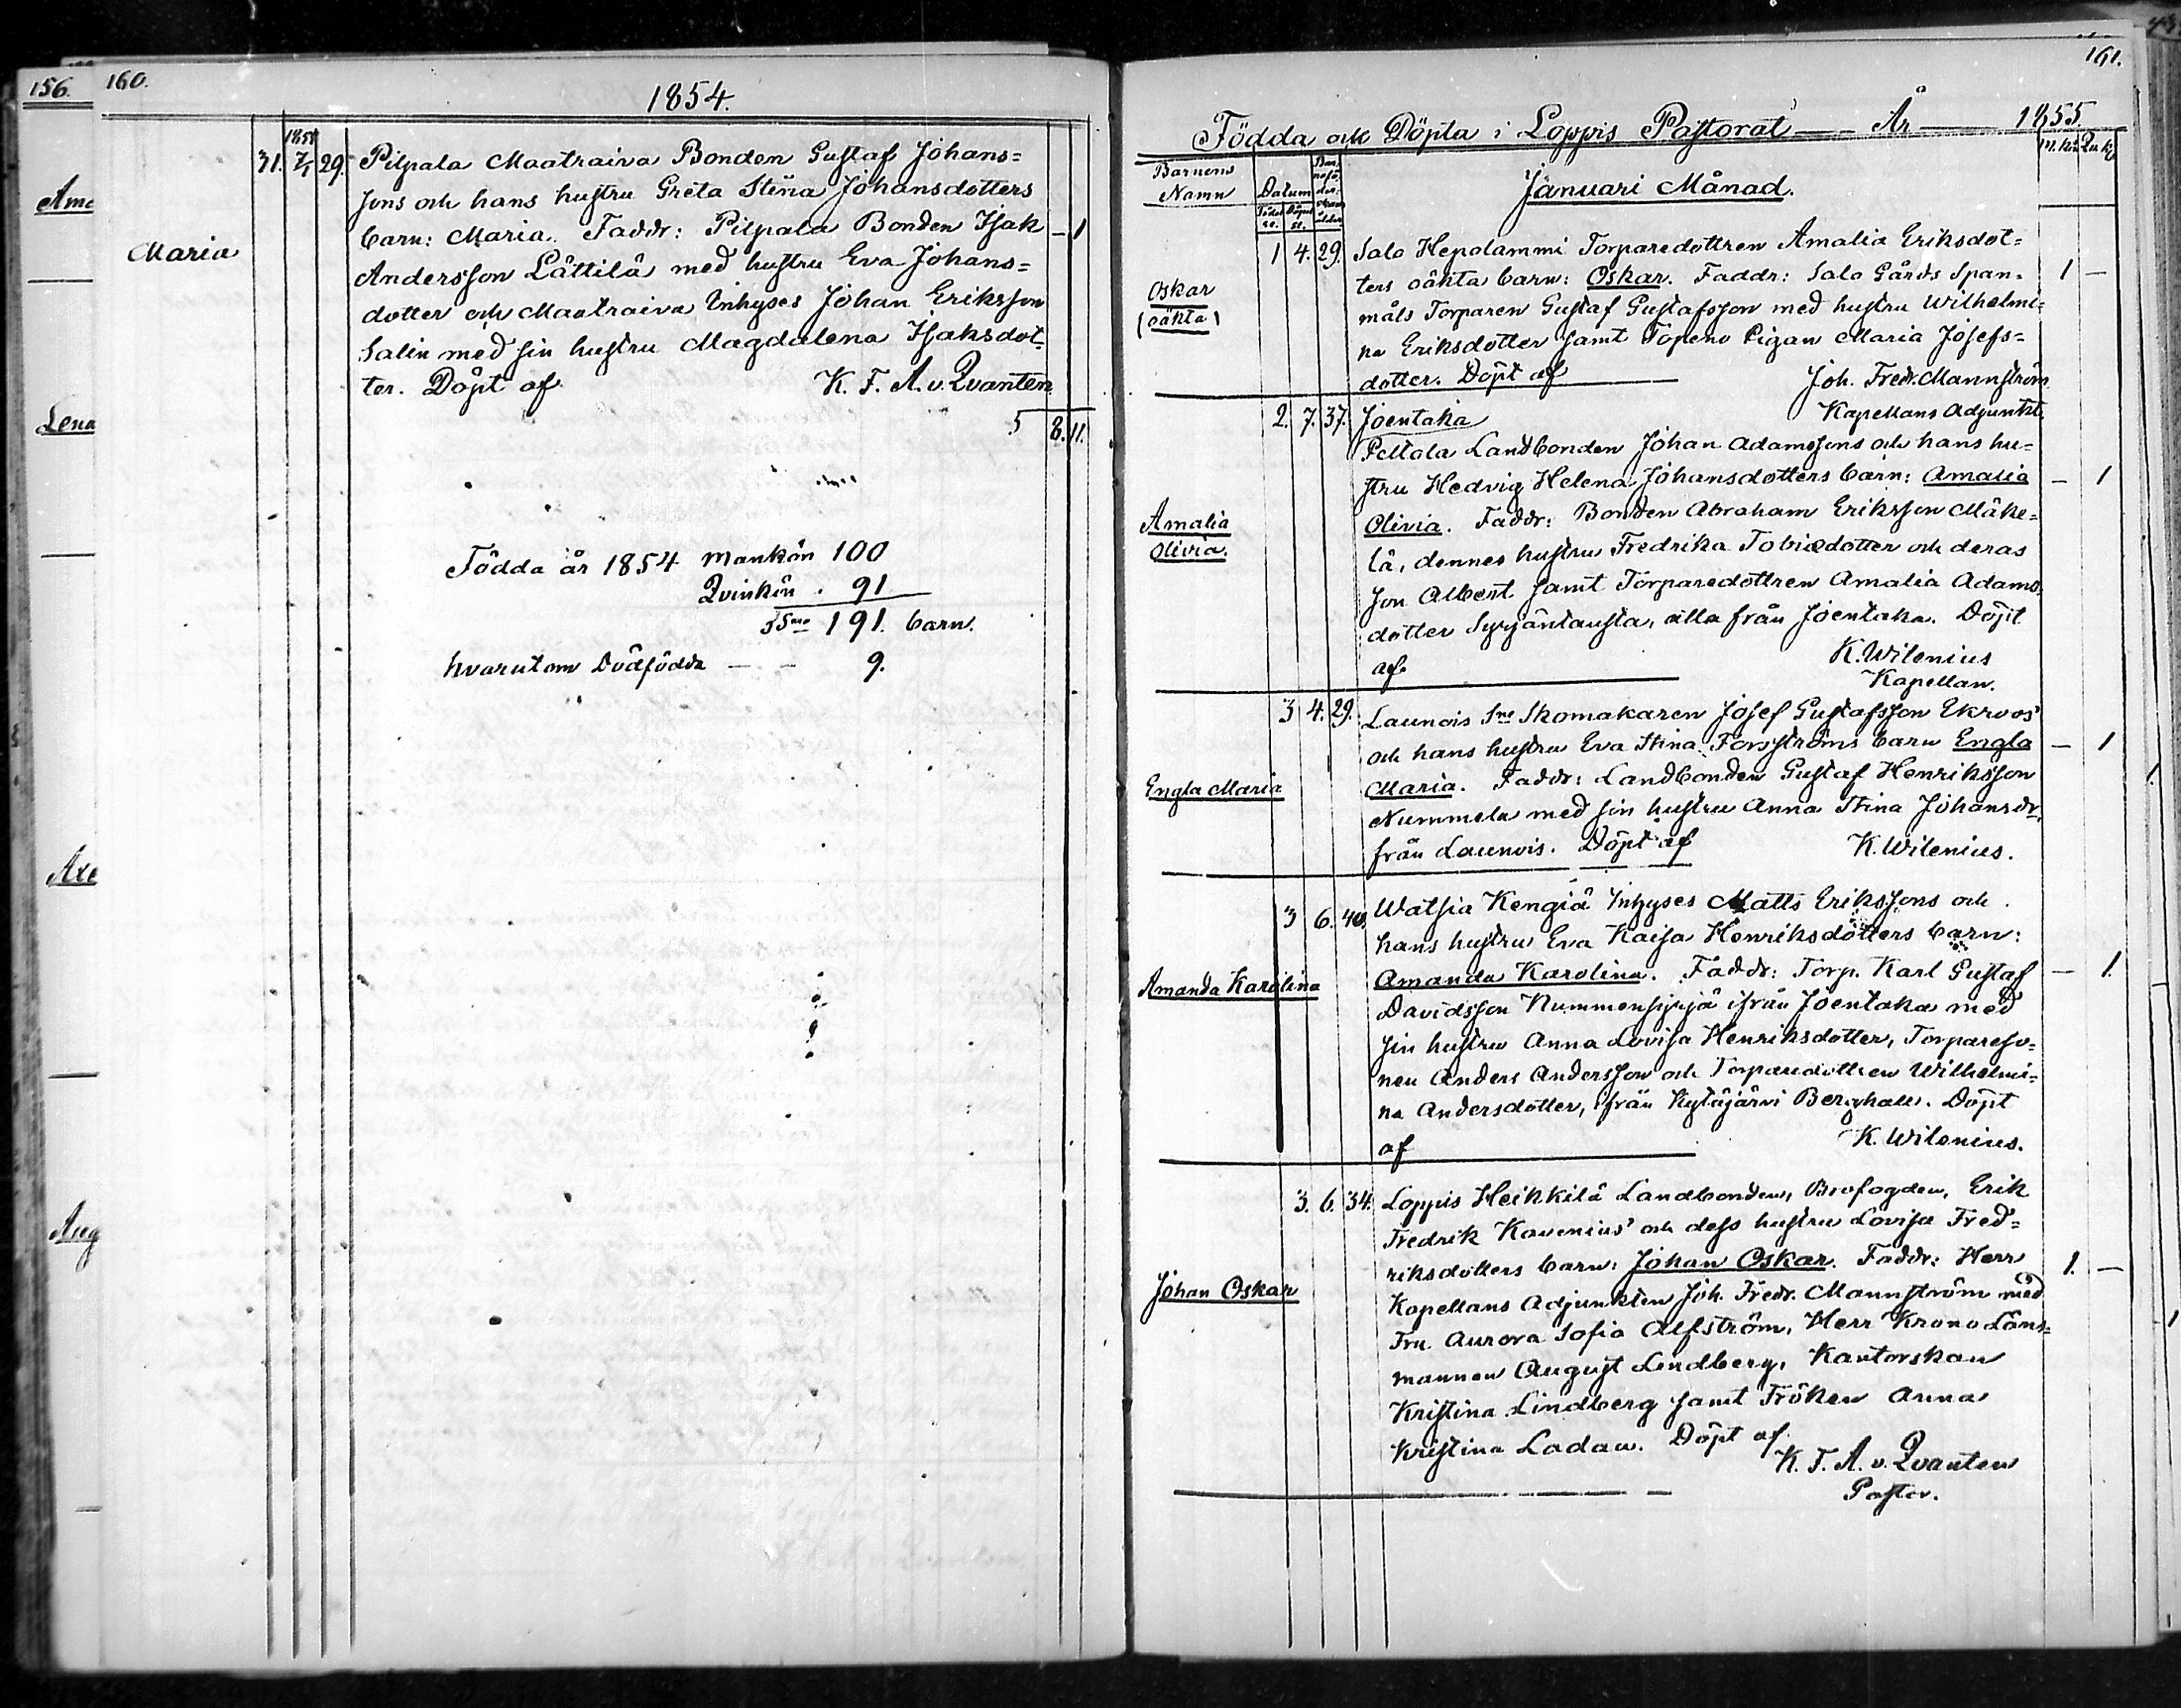 156.
160.
1854.
Ame
Lena
Axe
Aug
Maria
31. 1855 7/1 29. Pilpala Maatraiva Bonden Gustaf Johans=
sons och hans hustru Greta Stina Johansdotters
barn: Maria. Faddr: Pilpala Bonden Isak — 1
Andersson Lättilä med hustru Eva Johans=
dotter och Maatraiva Inhyses Johan Eriksson
Salin med sin hustru Magdalena Isaksdot=
ter. Döpt af K. F. A. v. Qvanten.
5 8. 11.
Födda år 1854 Mankön 100
Qvinkön . 91
Sma 191. barn.
hvarutom Dödfödda — — 9.
161.
Födda och Döpta i Loppis Pastorat — År — 1855.
Barnens
Namn
Datum
Födel
se.
Döpel
se.
M. kön Qu. k.
Januari Månad.
Oskar
(oäkta)
1 4. 29. Salo Hepolammi Torparedottren Amalia Eriksdot=
ters oäkta barn: Oskar. Faddr: Salo Gårds Span= 1 —
måls Torparen Gustaf Gustafsson med hustru Wilhelmi=
na Eriksdotter samt Topeno Pigan Maria Josefs=
dotter. Döpt af Joh. Fredr. Mannström
Kapellans Adjunkt.
2. 7. 37. Joentaka
Peltola Landbonden Johan Adamssons och hans hu=
stru Hedvig Helena Johansdotters barn: Amalia — 1
Amalia
Olivia.
Olivia. Faddr: Bonden Abraham Eriksson Mäke=
lä, dennes hustru Fredrika Tobiædotter och deras
son Albert samt Torparedottren Amalia Adams=
dotter Syrjäntausta, alla från Joentaka. Döpt
af K. Wilenius
Kapellan.
3 4. 29. Launois Sne Skomakaren Josef Gustafsson Ekroos'
och hans hustru Eva Stina Forsströms barn Engla — 1
Engla Maria
Maria. Faddr: Landbonden Gustaf Henriksson
Nummela med sin hustru Anna Stina Johansdr.
från Launois. Döpt af K. Wilenius.
3 6. 40. Watsia Kengiä Inhyses Matts Erikssons och
hans hustru Eva Kaisa Henriksdotters barn:
Amanda Karolina
Amanda Karolina. Faddr: Torp. Karl Gustaf — 1.
Davidsson Nummensyrjä ifrån Joentaka med
sin hustru Anna Lovisa Henriksdotter, Torpareso=
nen Anders Andersson och Torparedottren Wilhelmi=
na Andersdotter, ifrån Kytäjärvi Berghäll. Döpt
af K. Wilenius.
3. 6. 34. Loppis Heikkilä Landbonden, Brofogden, Erik
Fredrik Kavenius' och dess hustru Lovisa Fred=
riksdotters barn: Johan Oskar. Faddr: Herr 1. —
Johan Oskar
Kapellans Adjunkten Joh. Fredr. Mannström med
Fru Aurora Sofia Alfström, Herr Krono Läns=
mannen August Lindberg, Kantorskan
Kristina Lindberg samt Fröken Anna
Kristina Ladau. Döpt af
K. F. A. v. Qvanten
Pastor.